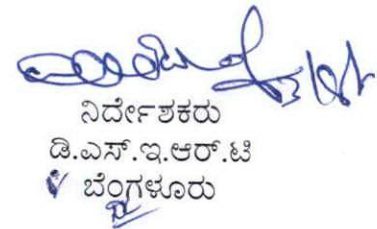 ನಿರ್ದೇಶಕರು
ಡಿ.ಎಸ್.ಇ.ಆರ್.ಟಿ
ಬೆಂಗಳೂರು